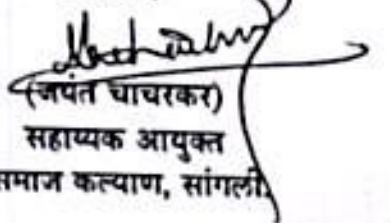 (जयंत चाचरकर)
सहाय्यक आयुक्त
समाज कल्याण, सांगली.